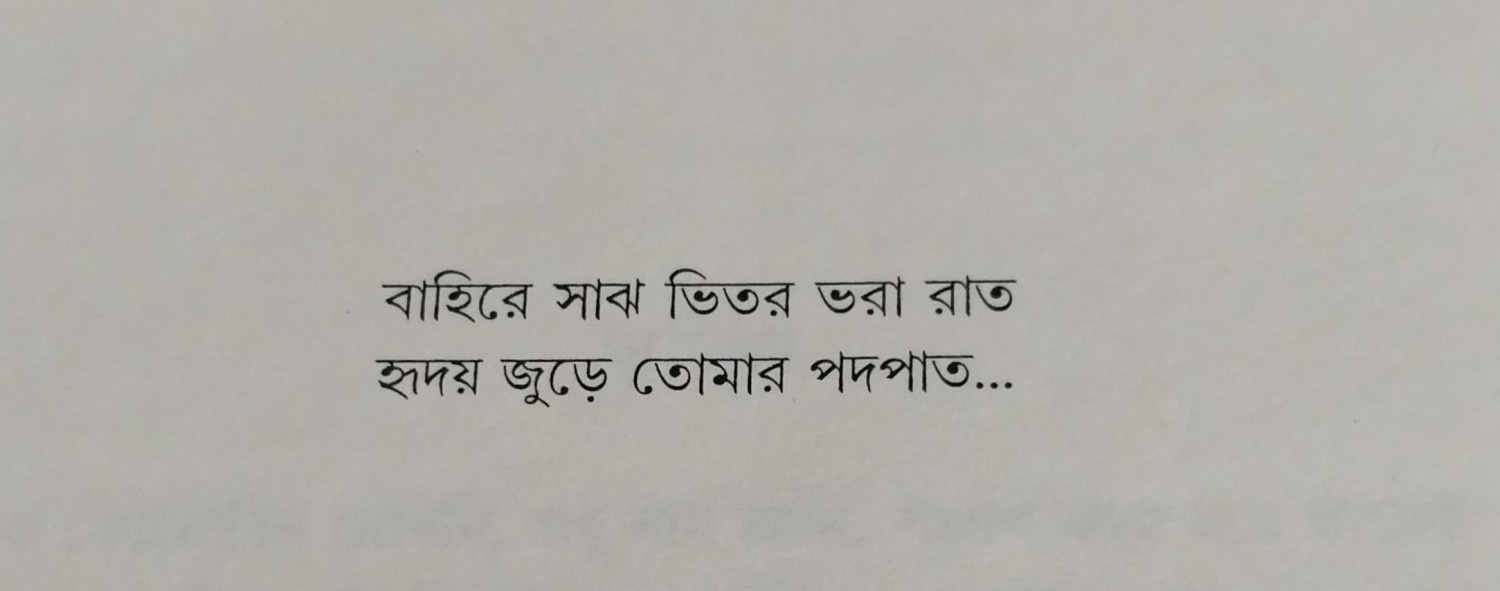 বাহিরে সাঝ ভিতর ভরা রাত
হৃদয় জুড়ে তোমার পদপাত...